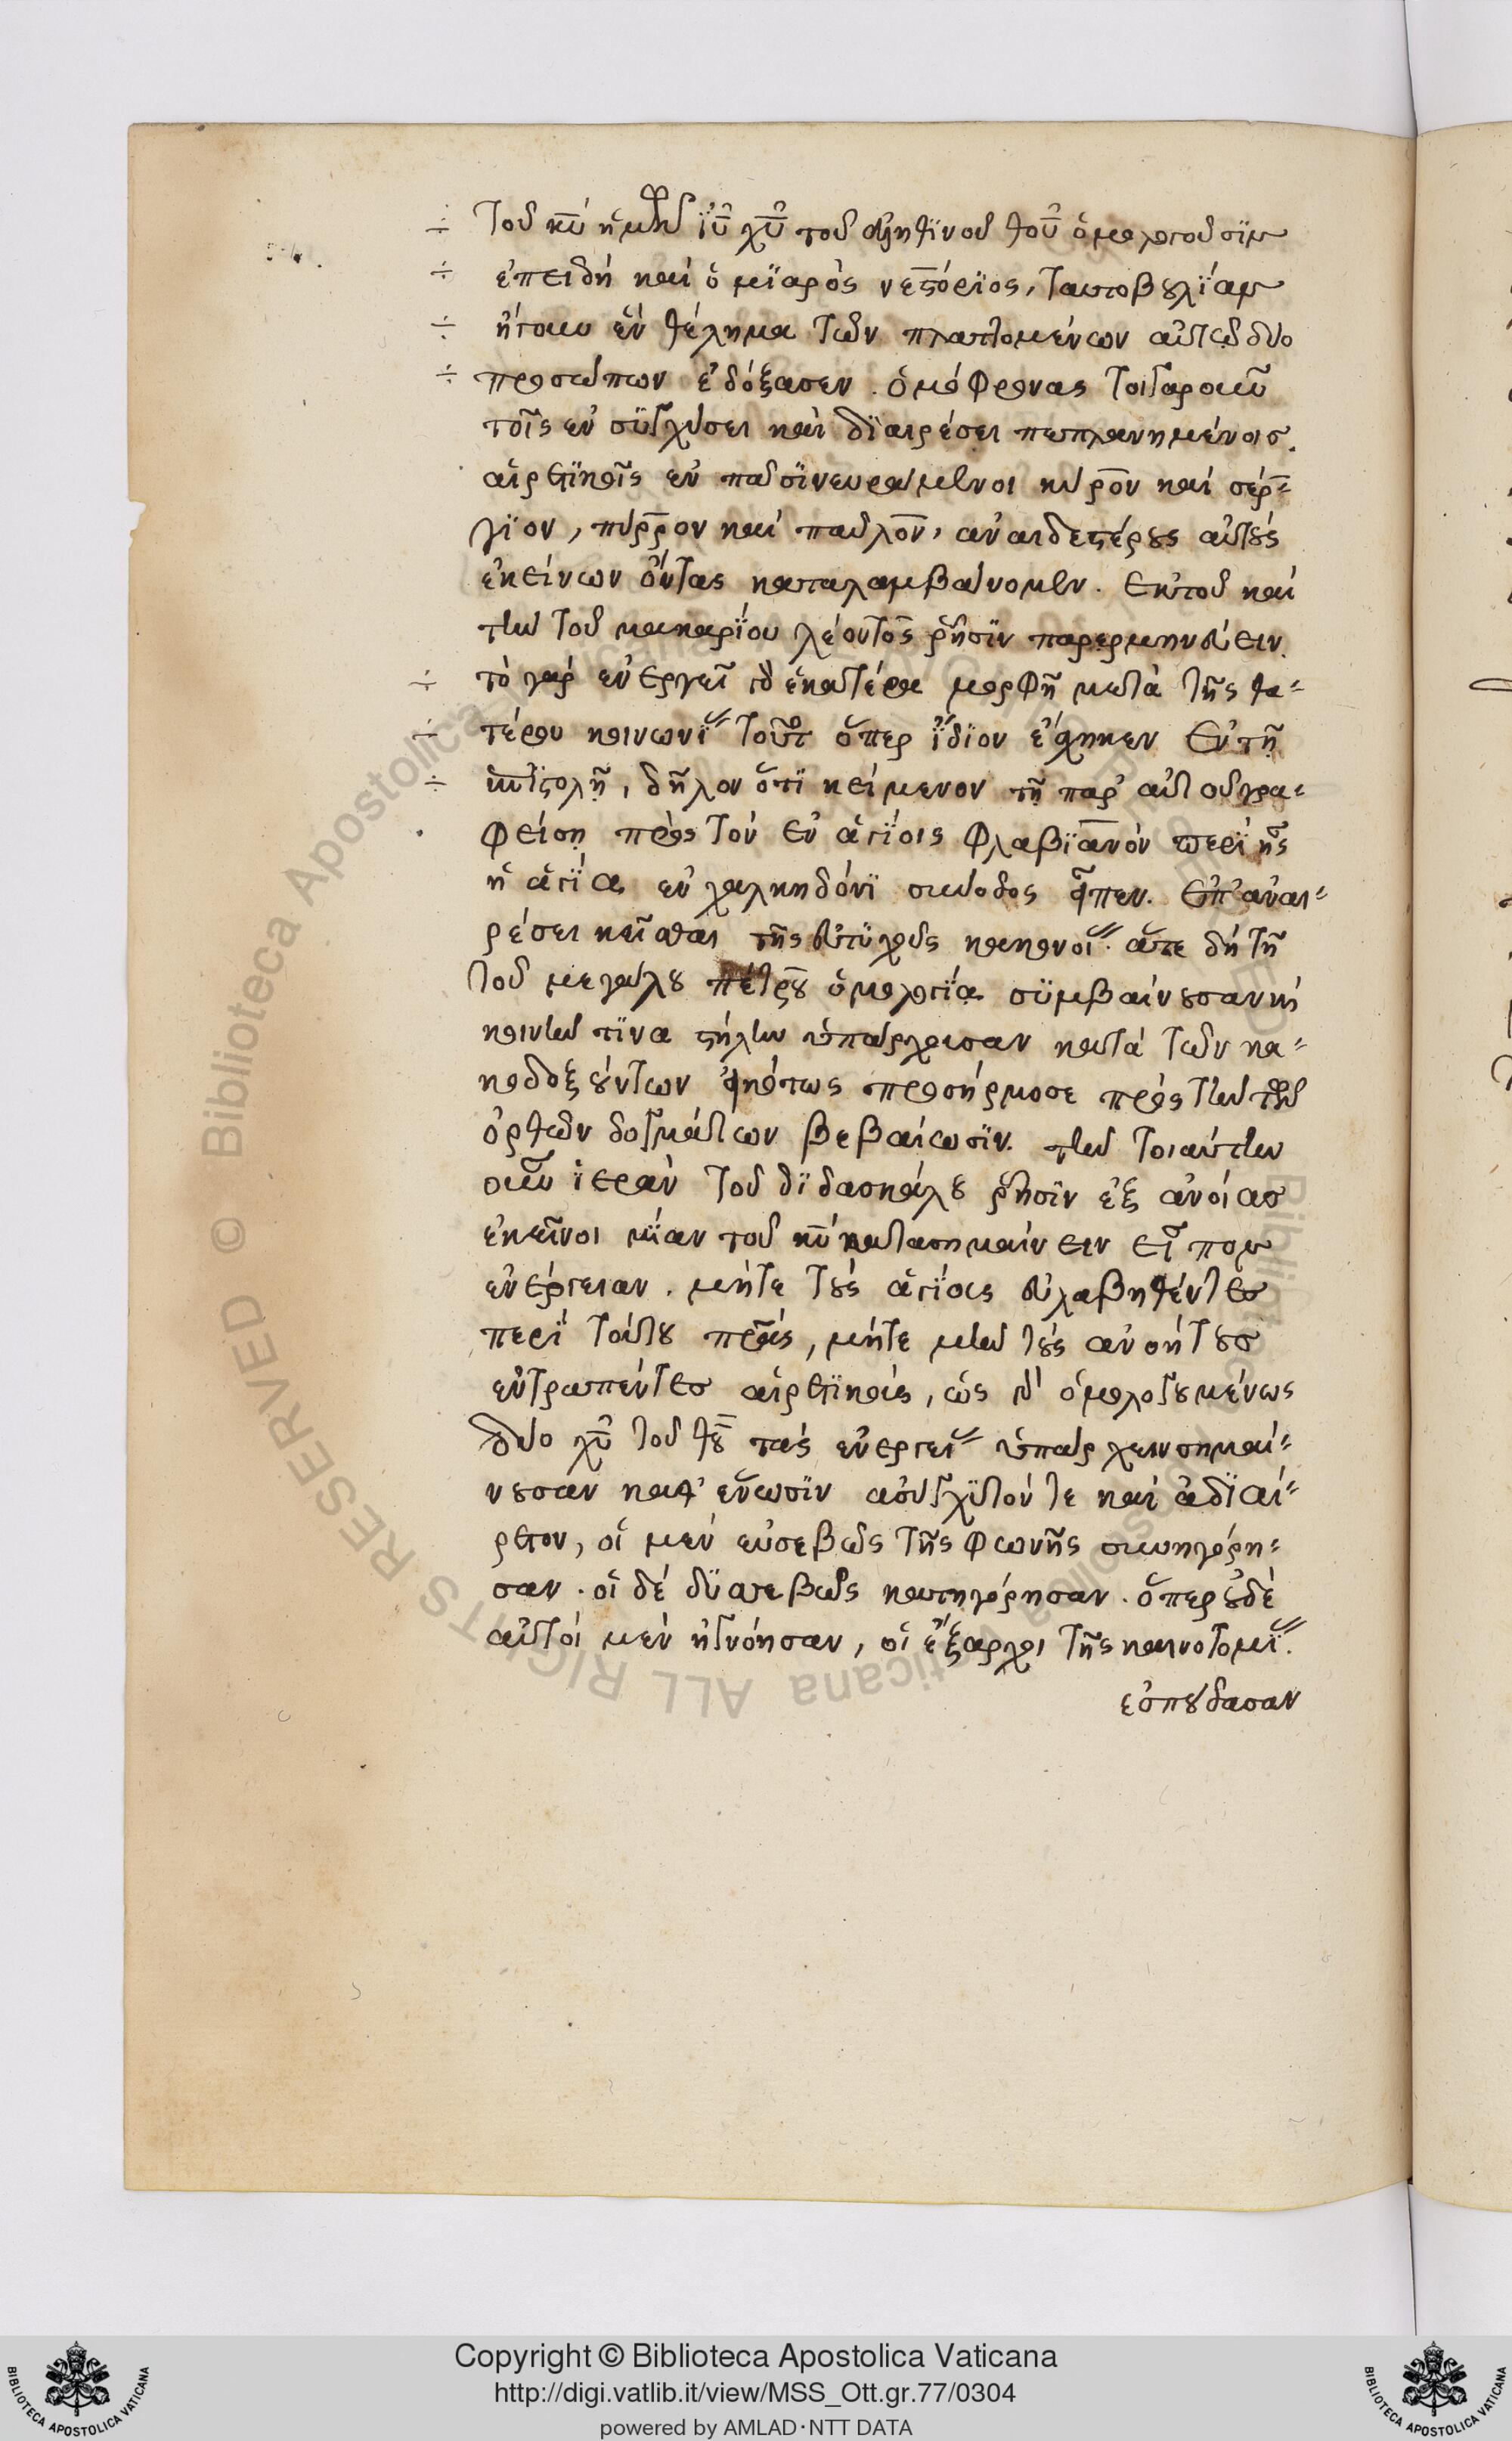 τοῦ κ̅υ̅ ἡμῶν ἰ̅υ̅ χ̅υ̅ τοῦ ἀληθϊνοῦ θ̅ο̅υ̅ ὁμολογοῦσϊν
ἐπειδὴ καὶ ὁ μϊαρὸς νεστόρϊος, ταυτοβουλΐαν
ἤγουν ἓν θέλημα τῶν πλαττομένων αὐτῶ δύο
προσώπων ἐδόξασεν. ὁμόφρονας τοιγαροῦν
τοῖς ἐν συγχύσει καὶ δϊαιρέσει πεπλανημένοις
αἱρετϊκοῖς ἐν πᾶσϊν εὑράμενοι κῦρον καὶ σέρ-
γϊον, πύρρον καὶ παῦλον, ἀναιδεστέρους αὐτοὺς
ἐκείνων ὄντας καταλαμβάνομεν. ἐκ τοῦ καὶ
τὴν τοῦ μακαρΐου λέοντος ῥῆσϊν παρερμηνεύειν.
τὸ γὰρ ἐνεργεῖ ἑκατέρα μορφῆ μετὰ τῆς θα-
τέρου κοινωνΐας τοῦθ ὅπερ ἴδϊον ἔσχηκεν ἐν τῆ
ἐπϊστολῆ, δῆλον ὅτϊ κείμενον τῆ παρ' αὐτοῦ γρα-
φείση πρὸς τὸν ἐν ἁγΐοις φλαβϊανὸν περὶ ἧς
ἡ ἁγΐα ἐν χαλκηδόνϊ σύνοδος εἶπεν. ἐπ' ἀναι-
ρέσει κεῖσθαι τῆς εὐτϋχοῦς κακονοΐας. ἅτε δὴ τῆ
τοῦ μεγάλου πέτρου ὁμολογία συμβαίνουσαν καὶ
κοινὴν τϊνα στήλην ὑπάρχουσαν κατὰ τῶν κα-
κοδοξούντων εἰκότως προσήρμοσε πρὸς τὴν τῶν
ὀρθῶν δογμάτων βεβαίωσϊν. τὴν τοιαύτην
οὖν ϊερὰν τοῦ δϊδασκάλου ῥῆσϊν ἐξ ἀνοίας
ἐκεῖνοι μΐαν τοῦ κ̅υ̅ κατασημαίνειν εἶπον
ἐνέργειαν. μήτε τοὺς ἁγΐους εὐλαβηθέντες
περὶ τούτου π̅ρ̅α̅ς, μήτε μὴν τοὺς ἀνοήτους
ἐντραπέντες αἱρετϊκοὺς, ὡς ὁμολογουμένως
δύο χ̅υ̅ τοῦ θ̅ου τὰς ἐνεργείας ὑπάρχειν σημαί-
νουσαν καθ' ἕνωσϊν ἀσύγχϋτόν τε καὶ ἀδϊαί-
ρετον, οἱ μὲν εὐσεβῶς τῆς φωνῆς συνηγόρη-
σαν. οἱ δὲ δϋσσεβῶς κατηγόρησαν. ὅπερ οὐδὲ
αὐτοὶ μὲν ἠγνόησαν, οἱ ἔξαρχοι τῆς καινοτομΐας.
ἐσπούδασαν
Copyright © Biblioteca Apostolica Vaticana
http://digi.vatlib.it/view/MSS_Ott.gr.77/0304
powered by AMLAD·NTT DATA